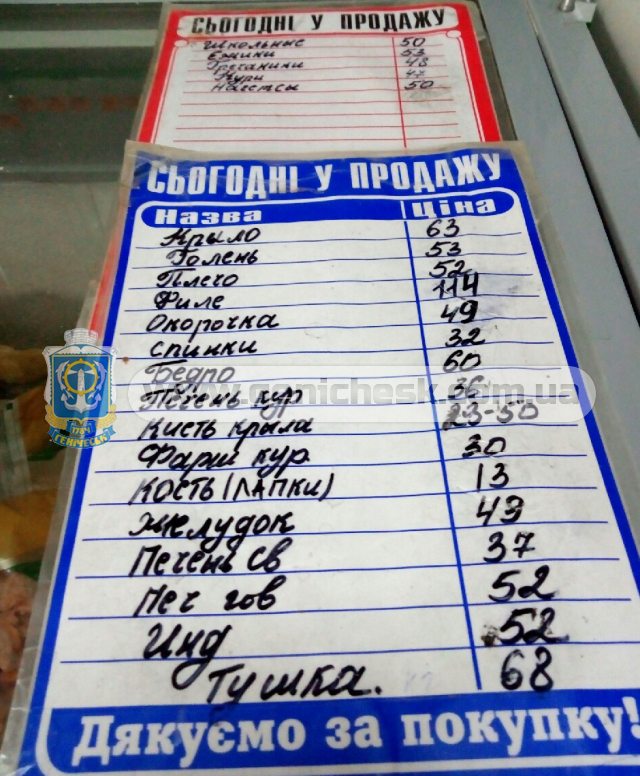 СЬОГОДНІ У ПРОДАЖУ
Школьные 50
Ёжики 53
Гречаники 48
Кури 47
Нагетсы 50
СЬОГОДНІ У ПРОДАЖУ
Назва Ціна
Крыло 63
Голень 53
Плечо 52
Филе 114
Окорочка 49
спинки 32
Бедро 60
Печень кур 36
Кисть крыла 23-50
Фарш кур. 30
Кость (лапки) 13
Желудок 43
Печень св 37
Печ гов 52
Инд 52
Тушка. 68
Дякуємо за покупку!
www.genichesk.com.ua
1784
ГЕНІЧЕСЬК